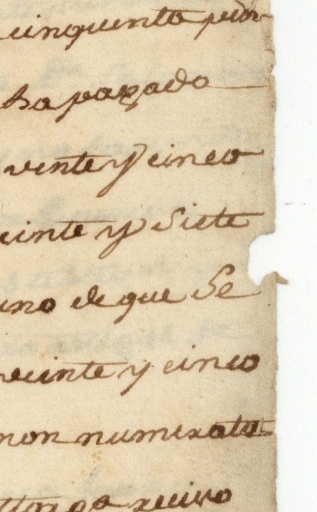 cinquenta
ha pagado
vente y cinco
einte y Siete
uno de que Se
veinte y cinco
non numerata
recivo